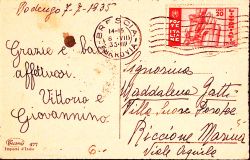 Padergo 7-8-1935
Grazie e baci
affettuosi.
Vittorio e
Giovannino.
BRESCIA
14-15
8-VIII
35-XIII
POSTE ITALIANE
20
Signorina
Maddalena Gatti
Villa Suore Dorotee
Riccione Marina
Viale Aquila
477